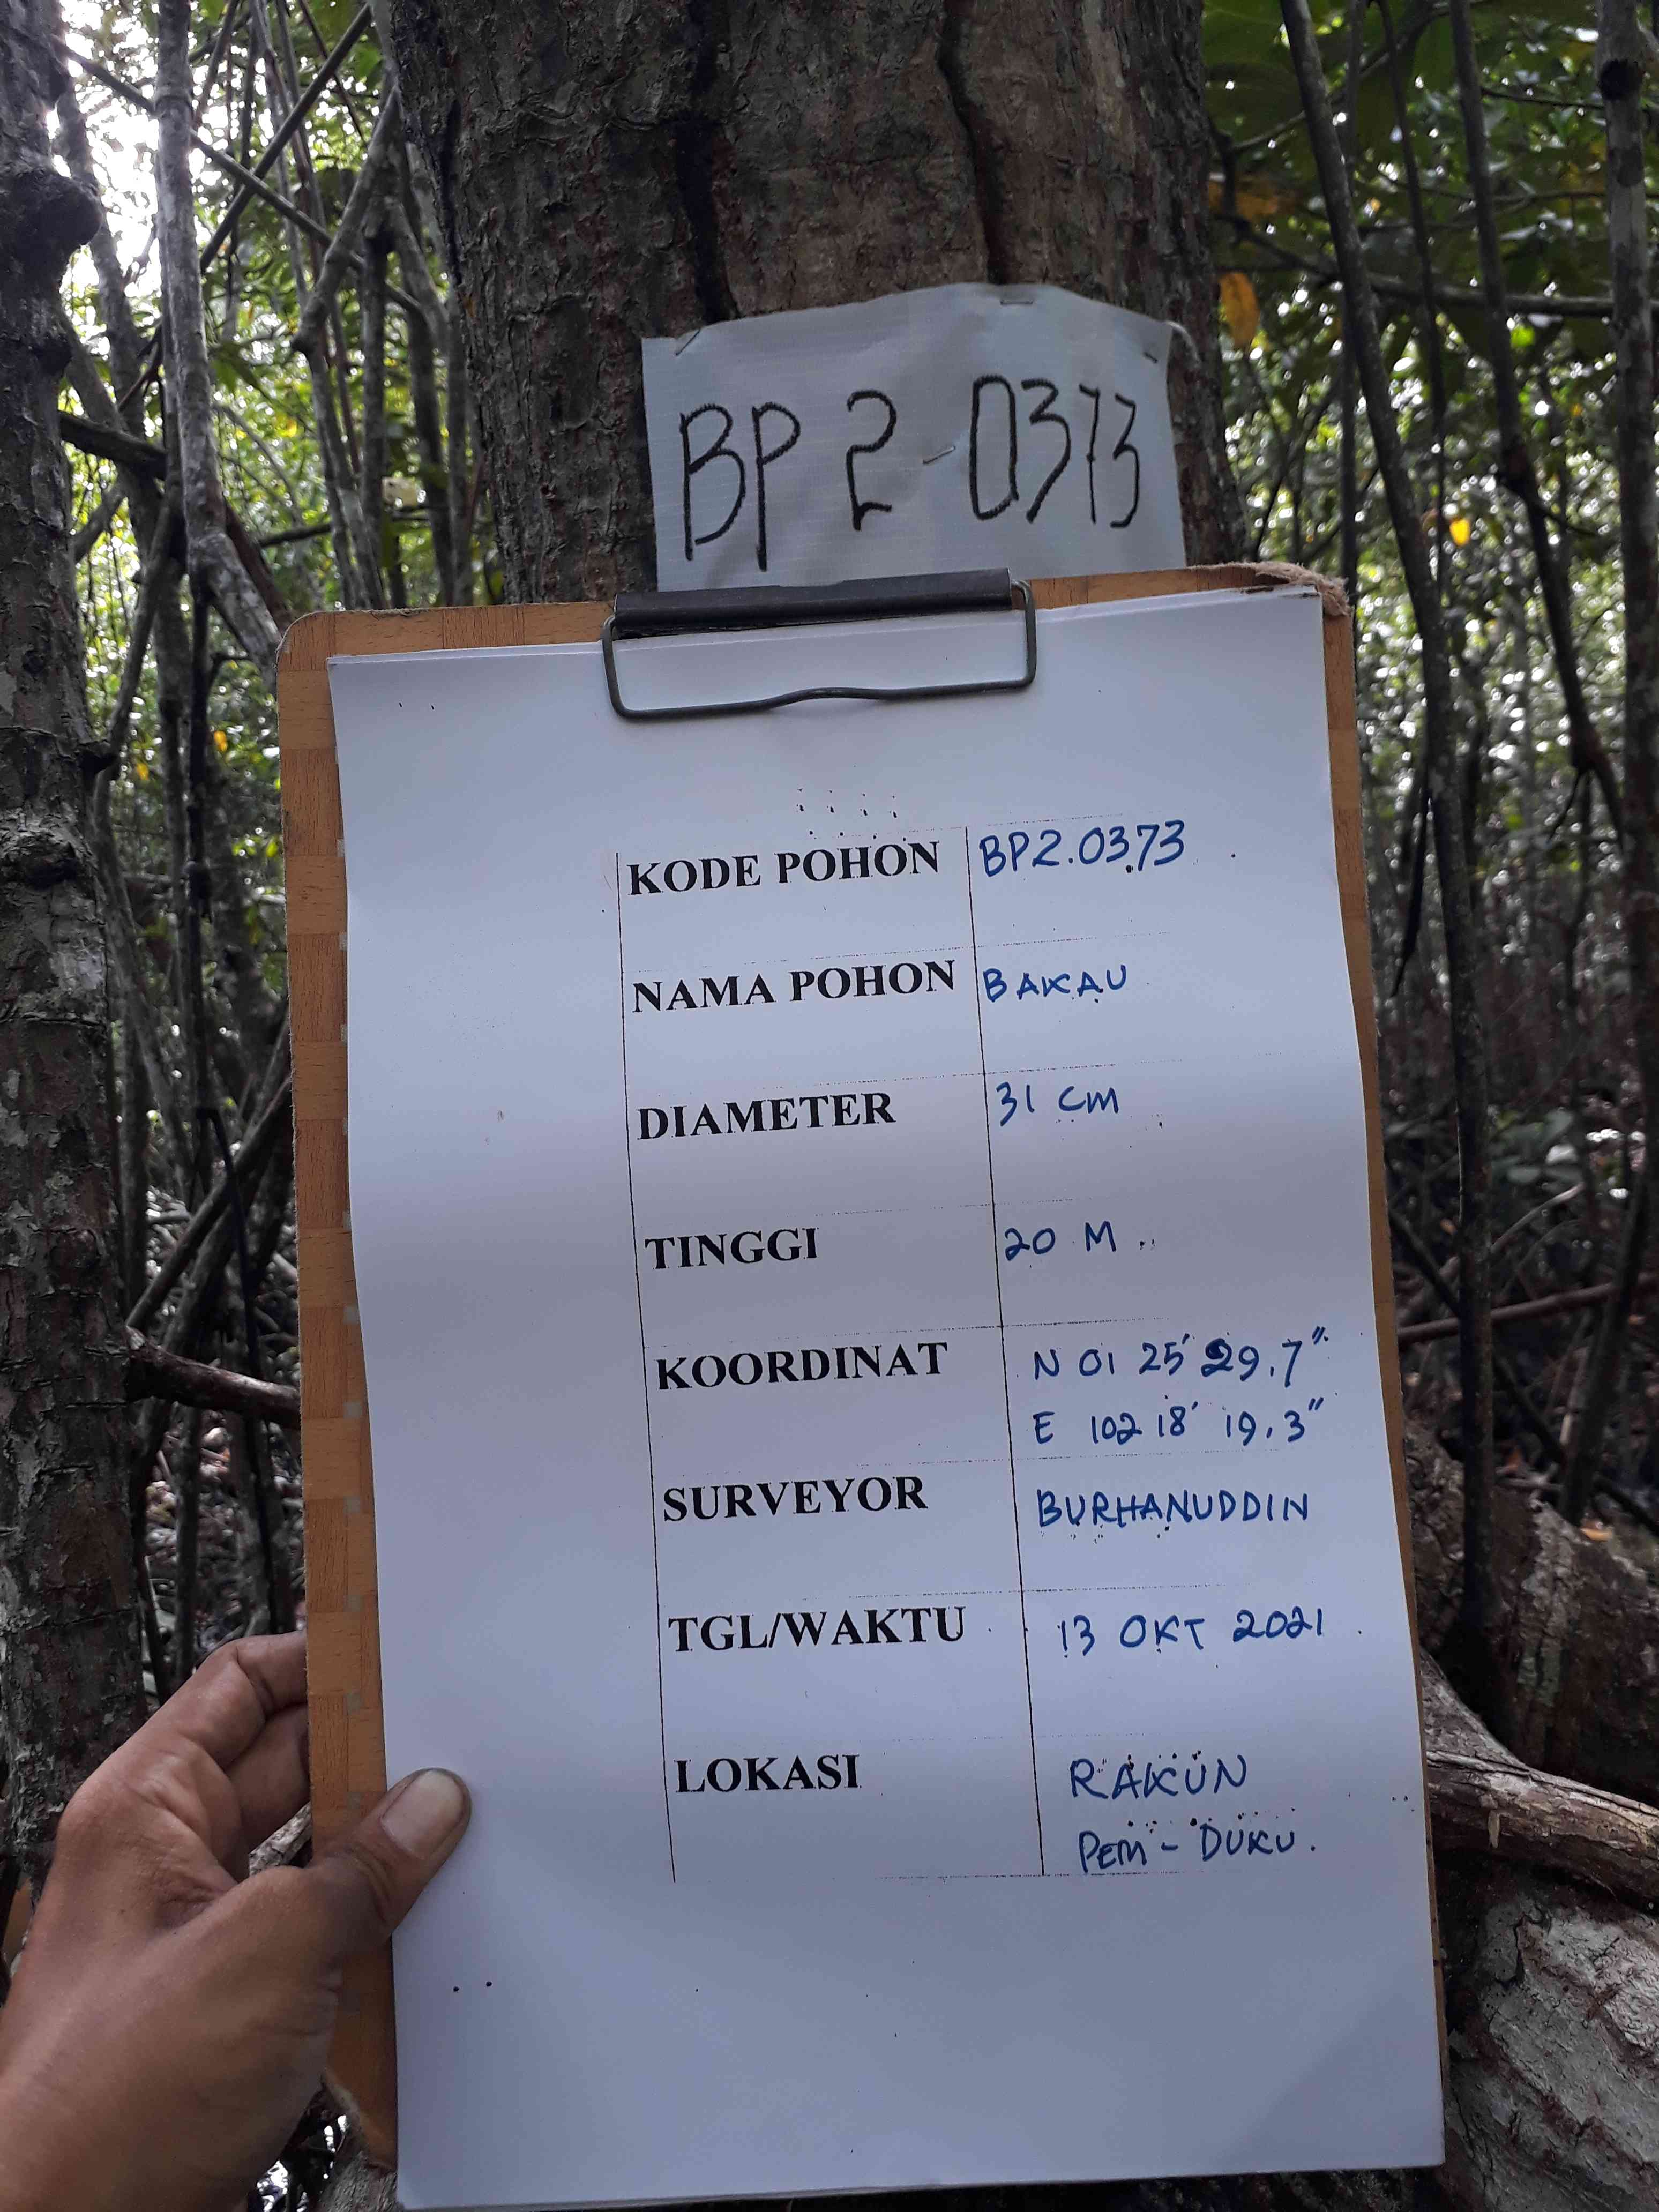 BP 2-0373
KODE POHON BP2.0373
NAMA POHON BAKAU
DIAMETER 31 cm
TINGGI 20 M
KOORDINAT N 01 25' 29.7"
E 102 18' 19.3"
SURVEYOR BURHANUDDIN
TGL/WAKTU 13 OKT 2021
LOKASI RAKUN
PEM - DUKU.